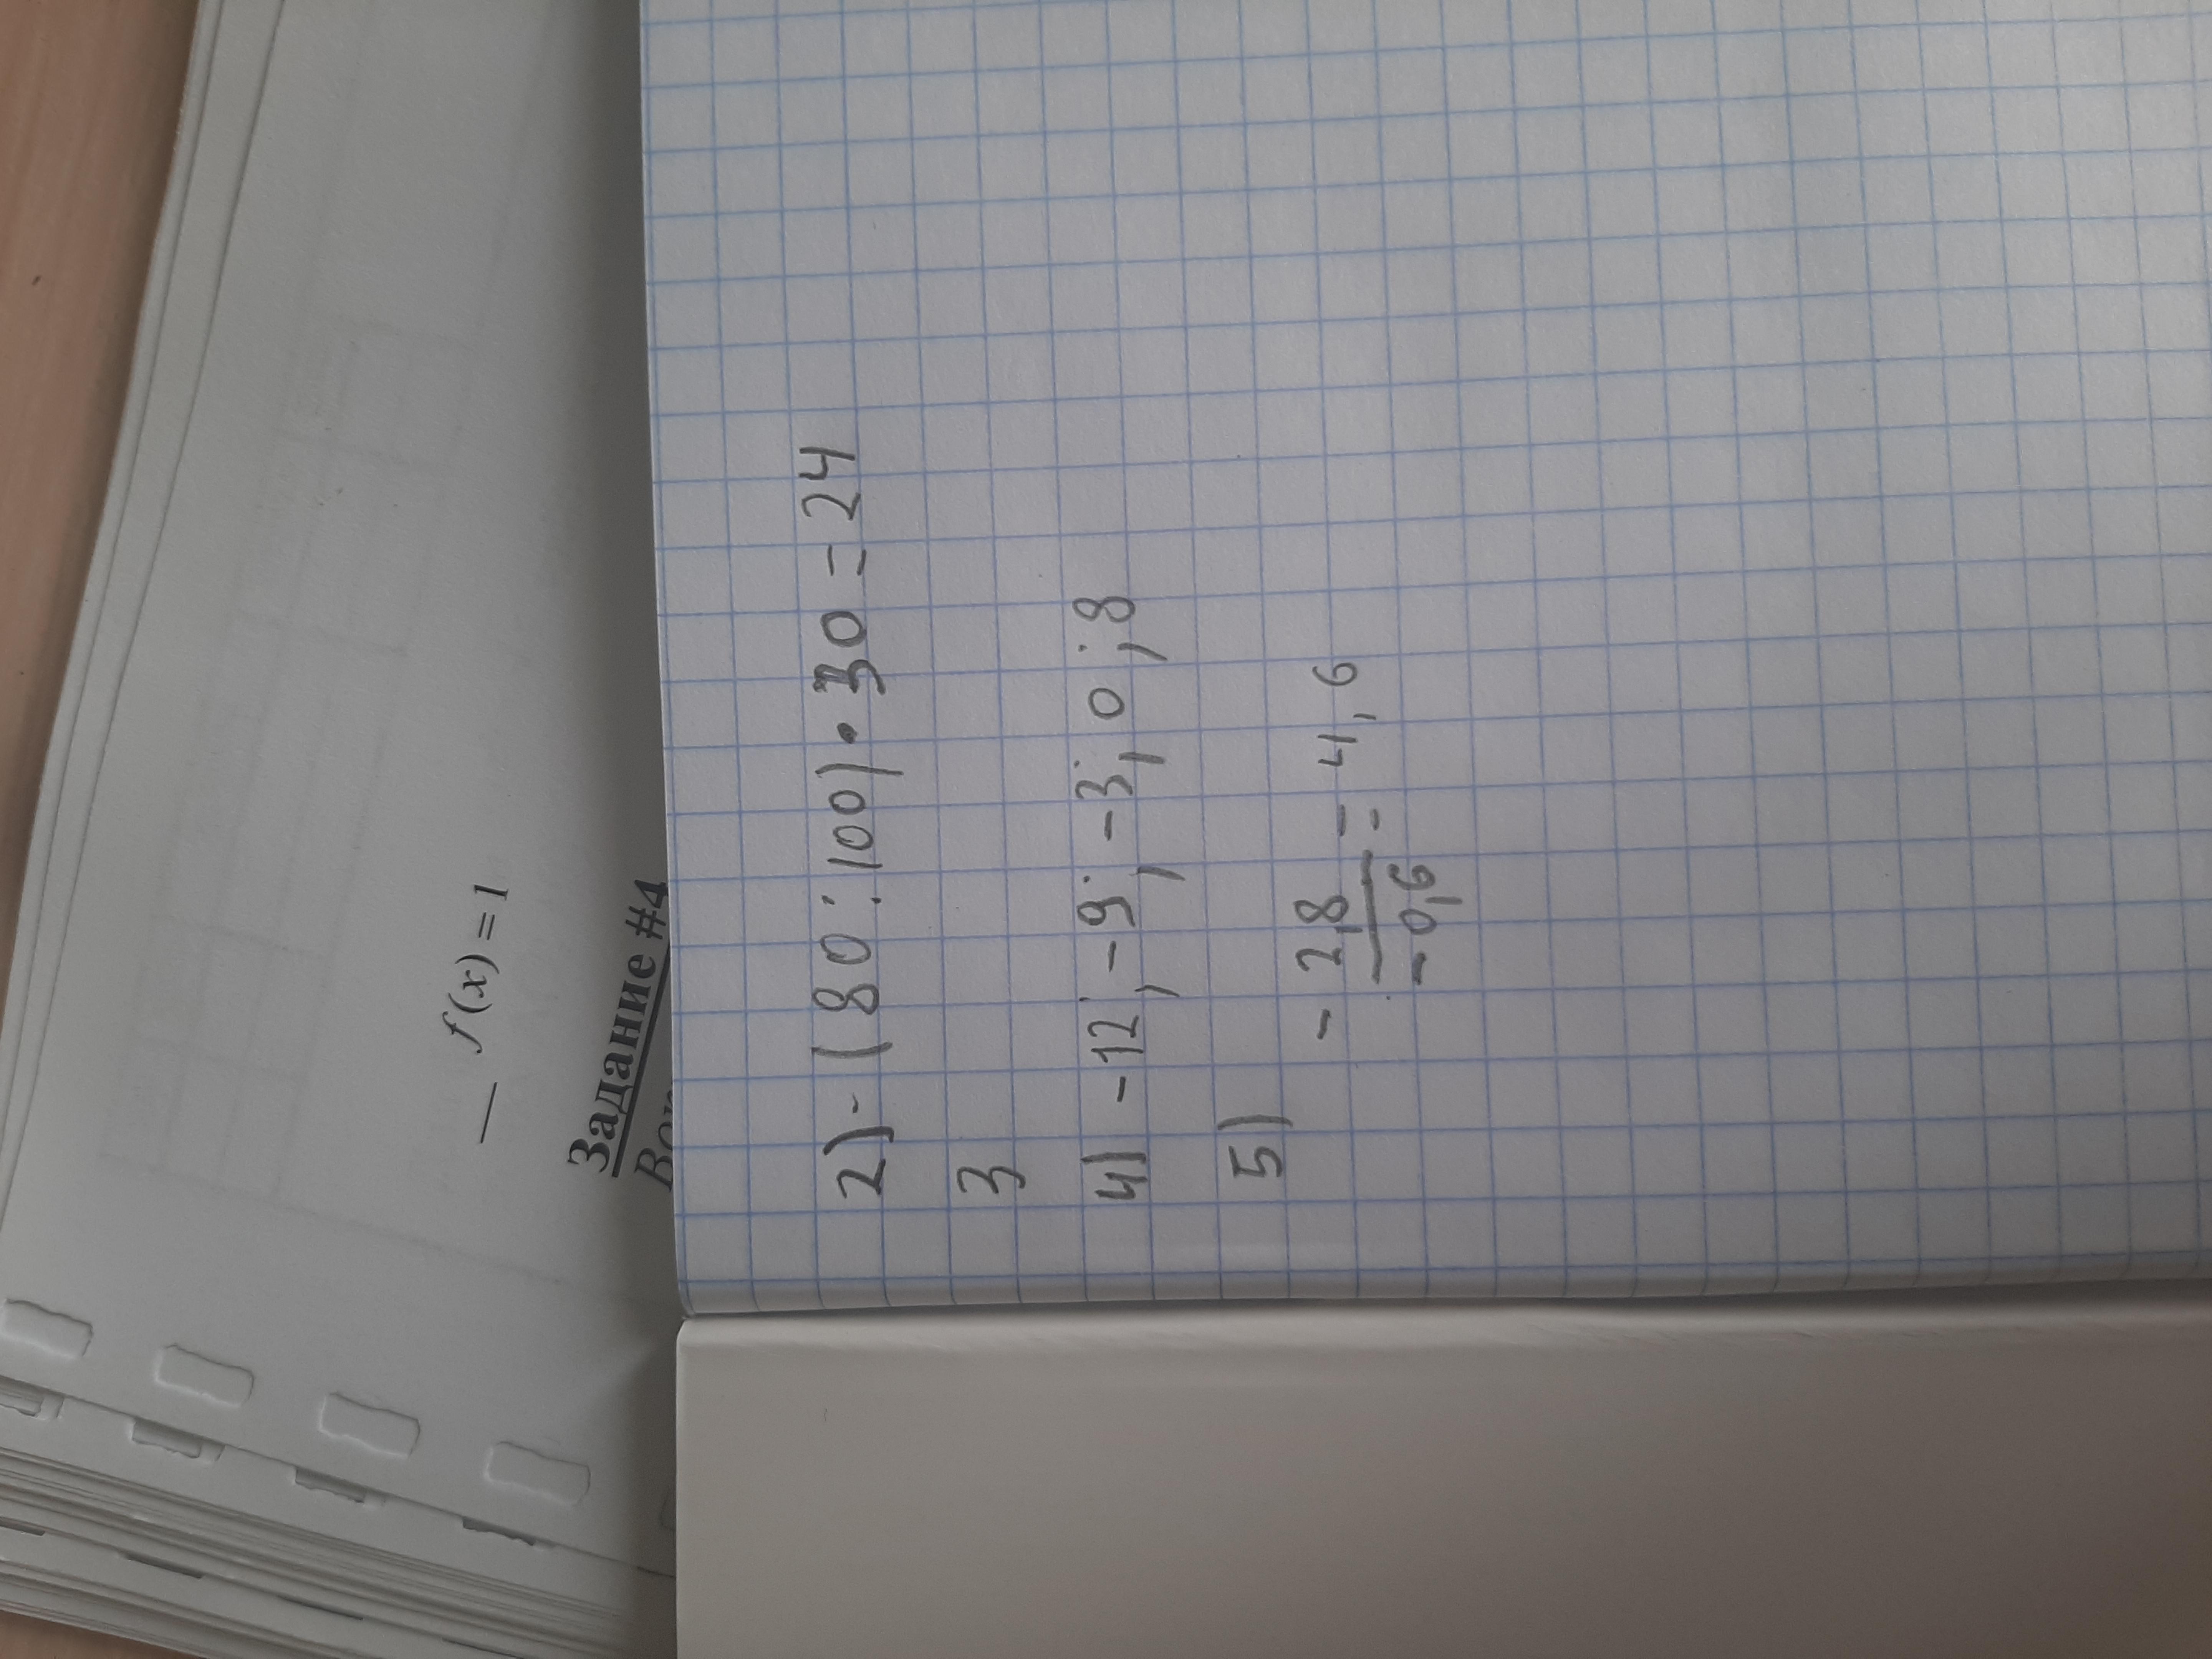 — f(x) = 1
Задание #4
2) - (80 : 100) • 30 = 24
3
4) -12; -9; -3; 0; 8
5)
- 2,8 = 4,6
- 0,6